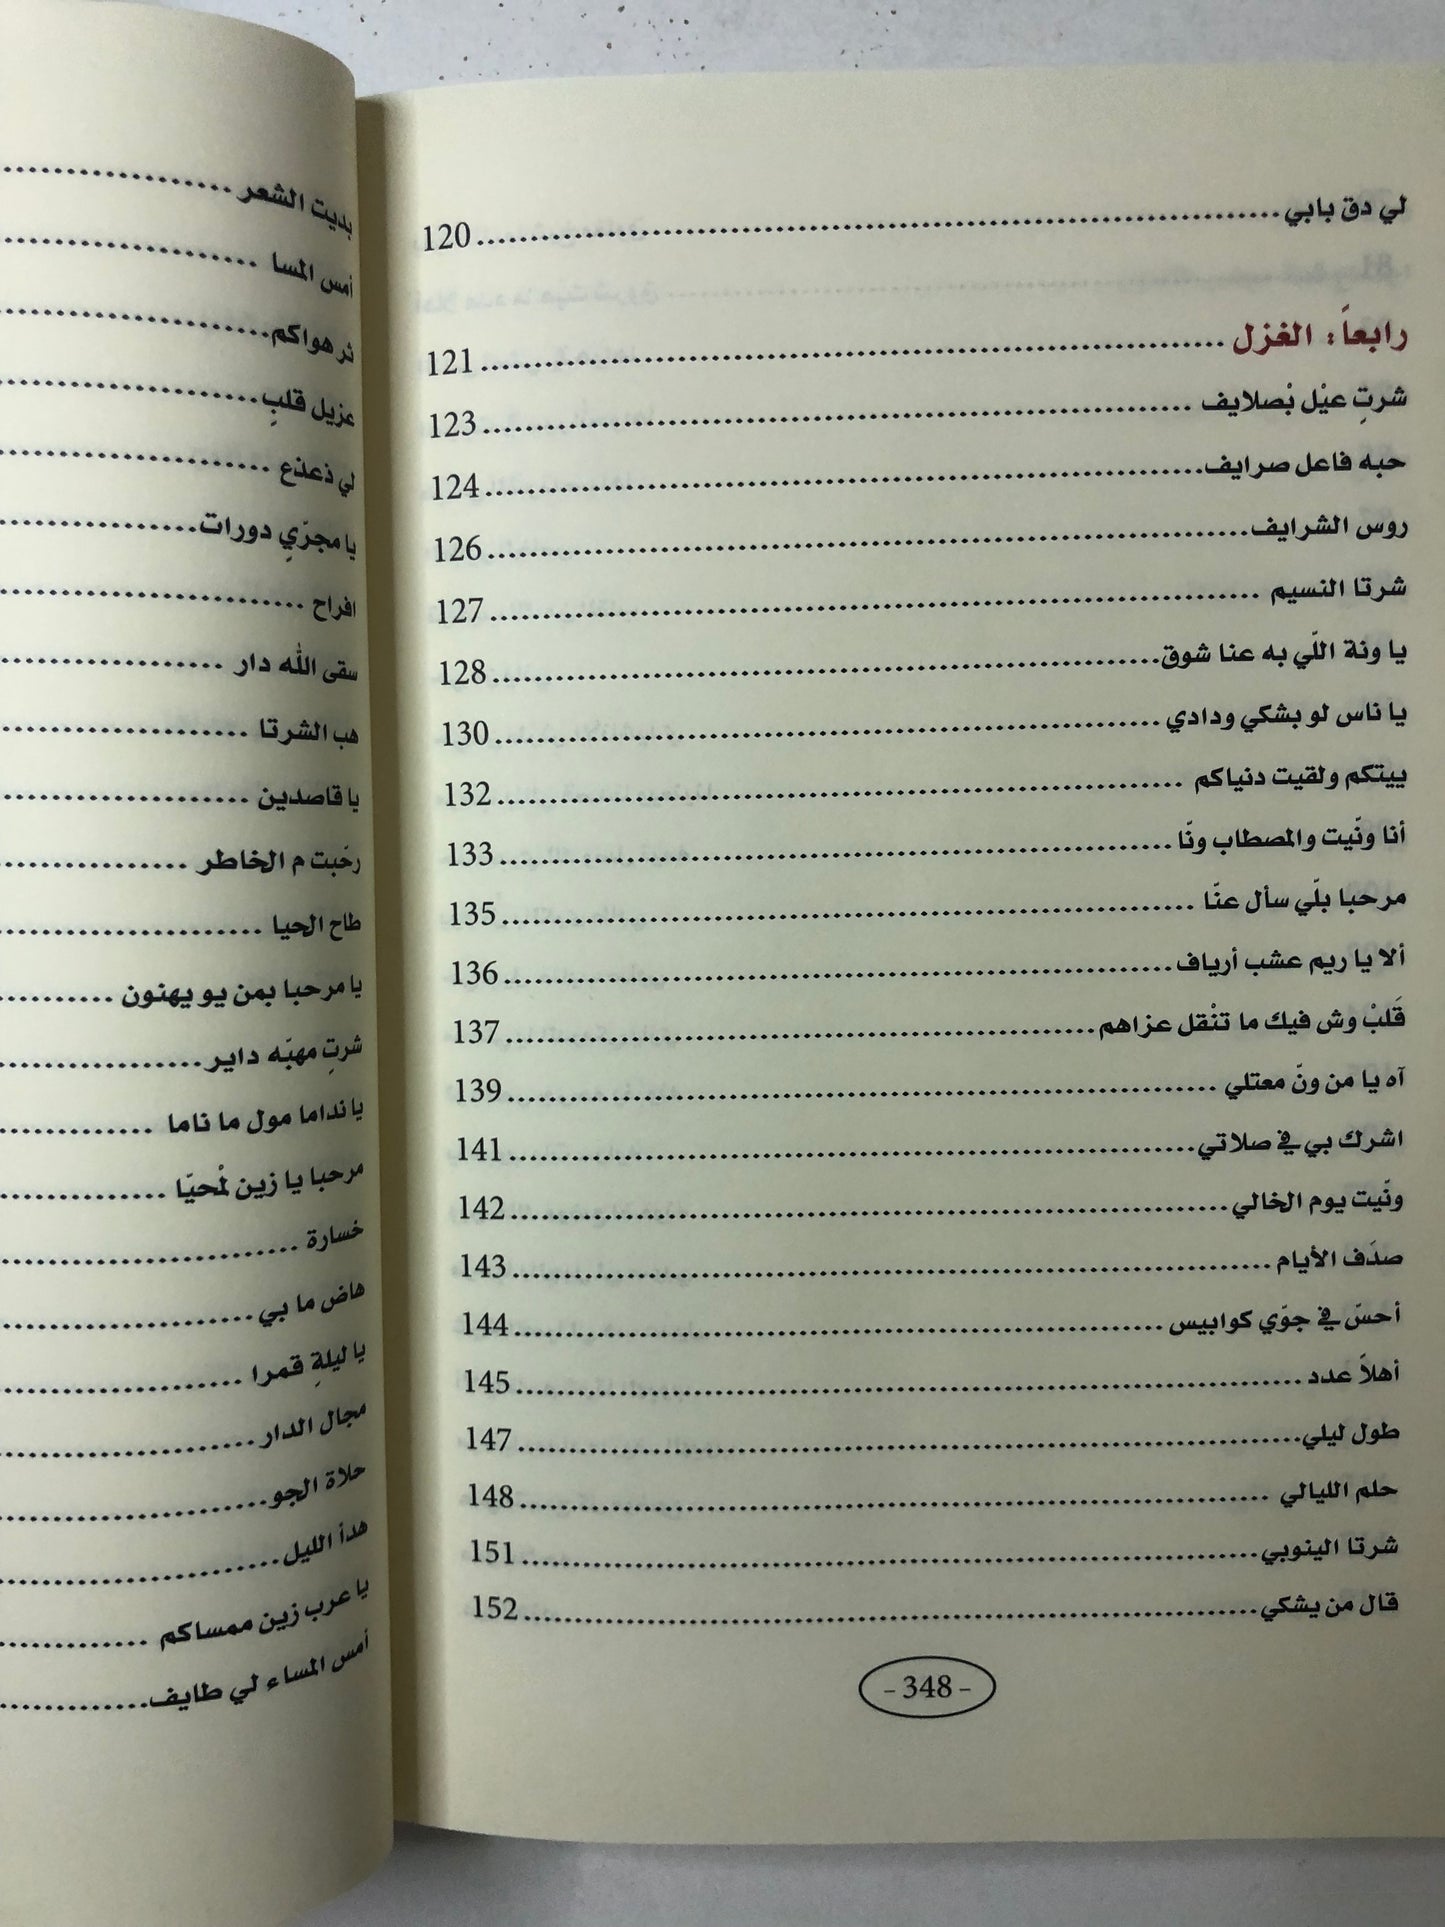 لي دق بابي ........ 120
رابعاً: الغزل ........ 121
شرتِ عيْل بْصلايف ........ 123
حبه فاعل صرايف ........ 124
روس الشرايف ........ 126
شرتا النسيم ........ 127
يا ونة اللّي به عنا شوق ........ 128
يا ناس لو بشكي ودادي ........ 130
ييتكم ولقيت دنياكم ........ 132
أنا ونّيت والمصطاب ونّا ........ 133
مرحبا بلّي سأل عنّا ........ 135
ألا يا ريم عشب أرياف ........ 136
قَلبْ وش فيك ما تنْقل عزاهم ........ 137
آه يا من ونّ معتلي ........ 139
اشرك بي في صلاتي ........ 141
ونّيت يوم الخالي ........ 142
صدَف الأيام ........ 143
أحسّ في جوّي كوابيس ........ 144
أهلاً عدد ........ 145
طول ليلي ........ 147
حلم الليالي ........ 148
شرتا الينوبي ........ 151
قال من يشكي ........ 152
- 348 -
بديت الشعر ........
أمس المسا ........
ثر هواكم ........
عزيل قلبٍ ........
لي ذعذع ........
يا مجرّيِ دورات ........
افراح ........
سقى الله دار ........
هب الشرتا ........
يا قاصدين ........
رحّبت م الخاطر ........
طاح الحيا ........
يا مرحبا بمن يو يهنون ........
شرتِ مهبّه داير ........
يا نداما مول ما ناما ........
مرحبا يا زين لْمحيّا ........
خسارة ........
هاض ما بي ........
يا ليلةِ قمرا ........
مجال الدار ........
حلاة الجو ........
هدأ الليل ........
يا عرب زين ممساكم ........
أمس المساء لي طايف ........